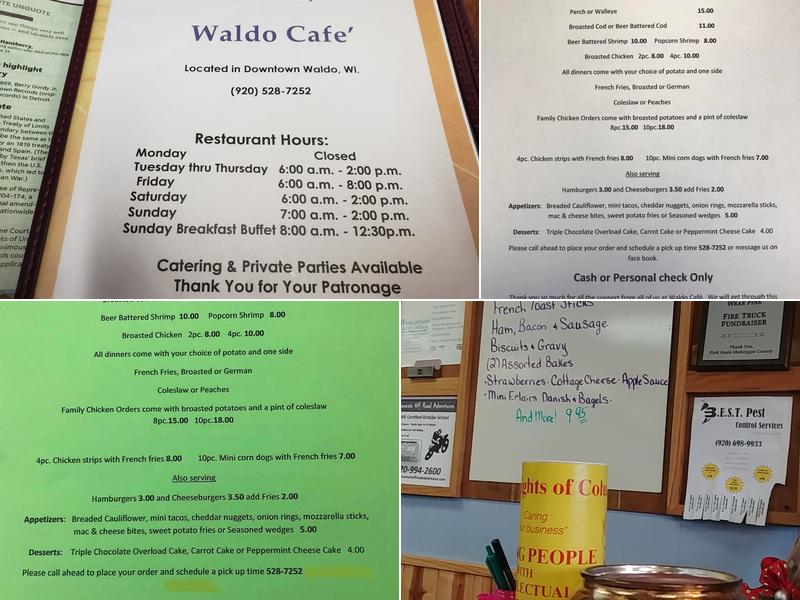 OTE UNQUOTE
highlight
1959, Berry Gordy Jr.
in Detroit.
United States and
Treaty of Limits
by an 1819 treaty
and Spain. (The
by Texas' brief
then the U.S.
, which led to
an War.)
Waldo Cafe'
Located in Downtown Waldo, WI.
(920) 528-7252
Restaurant Hours:
Monday Closed
Tuesday thru Thursday 6:00 a.m. - 2:00 p.m.
Friday 6:00 a.m. - 8:00 p.m.
Saturday 6:00 a.m. - 2:00 p.m.
Sunday 7:00 a.m. - 2:00 p.m.
Sunday Breakfast Buffet 8:00 a.m. - 12:30p.m.
Catering & Private Parties Available
Thank You for Your Patronage
Perch or Walleye 15.00
Broasted Cod or Beer Battered Cod 11.00
Beer Battered Shrimp 10.00 Popcorn Shrimp 8.00
Broasted Chicken 2pc. 8.00 4pc. 10.00
All dinners come with your choice of potato and one side
French Fries, Broasted or German
Coleslaw or Peaches
Family Chicken Orders come with broasted potatoes and a pint of coleslaw
8pc.15.00 10pc.18.00
4pc. Chicken strips with French fries 8.00 10pc. Mini corn dogs with French fries 7.00
Also serving
Hamburgers 3.00 and Cheeseburgers 3.50 add Fries 2.00
Appetizers: Breaded Cauliflower, mini tacos, cheddar nuggets, onion rings, mozzarella sticks,
mac & cheese bites, sweet potato fries or Seasoned wedges 5.00
Desserts: Triple Chocolate Overload Cake, Carrot Cake or Peppermint Cheese Cake 4.00
Please call ahead to place your order and schedule a pick up time 528-7252 or message us on
face book.
Cash or Personal check Only
Thank you so much for all the support from all of us at Waldo Café. We will get through this
Beer Battered Shrimp 10.00 Popcorn Shrimp 8.00
Broasted Chicken 2pc. 8.00 4pc. 10.00
All dinners come with your choice of potato and one side
French Fries, Broasted or German
Coleslaw or Peaches
Family Chicken Orders come with broasted potatoes and a pint of coleslaw
8pc.15.00 10pc.18.00
4pc. Chicken strips with French fries 8.00 10pc. Mini corn dogs with French fries 7.00
Also serving
Hamburgers 3.00 and Cheeseburgers 3.50 add Fries 2.00
Appetizers: Breaded Cauliflower, mini tacos, cheddar nuggets, onion rings, mozzarella sticks,
mac & cheese bites, sweet potato fries or Seasoned wedges 5.00
Desserts: Triple Chocolate Overload Cake, Carrot Cake or Peppermint Cheese Cake 4.00
Please call ahead to place your order and schedule a pick up time 528-7252
French Toast Sticks
Ham, Bacon & Sausage
Biscuits & Gravy
(2) Assorted Bakes
·Strawberries·Cottage Cheese·Apple Sauce
·Mini Eclairs Danish & Bagels·
And More! 9.95
WEAR PINK
FIRE TRUCK
FUNDRAISER
Thank You,
Pink Heals Sheboygan County
B.E.S.T. Pest
Control Services
(920) 698-9933
20-994-2600
ghts of Colu
"Caring
r business"
G PEOPLE
ITH
LECTUAL